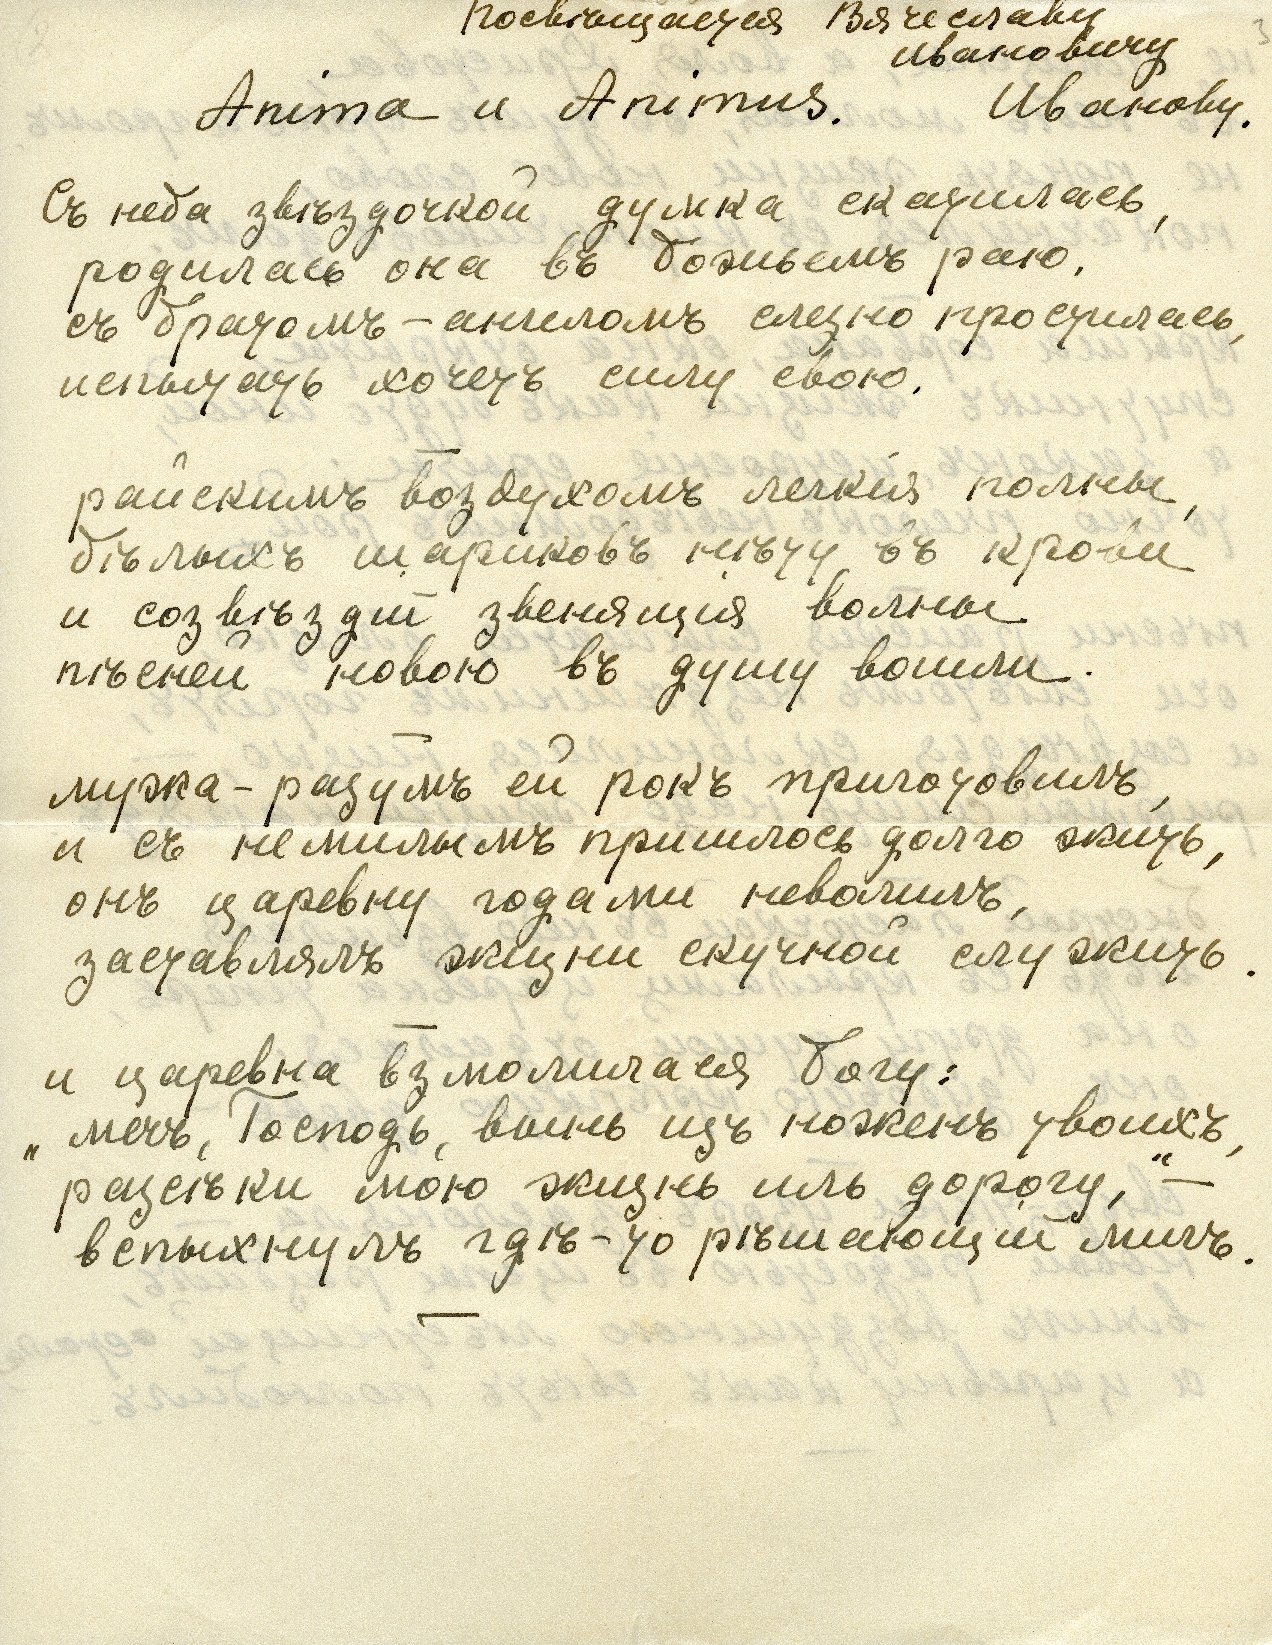 Посвѣщается Вячеславу
Ивановичу
Anima и Animus. Иванову.
Съ неба звѣздочкой думка скатилась,
родилась она въ божьемъ раю,
съ братомъ-ангеломъ слезно простилась,
испытать хочетъ силу свою.
райскимъ воздухомъ легкія полны,
бѣлыхъ шариковъ нѣту въ крови
и созвѣздій звенящія волны
пѣсней новою въ душу вошли.
мужа-разумъ ей рокъ приготовилъ,
и съ немилымъ пришлось долго жить,
онъ царевну годами неволилъ,
заставлялъ жизни скучной служить.
и царевна взмолилася Богу:
„мечъ, Господь, вынь изъ ноженъ твоихъ,
разсѣки мою жизнь иль дорогу,“ —
вспыхнулъ гдѣ-то рѣшающій мигъ.